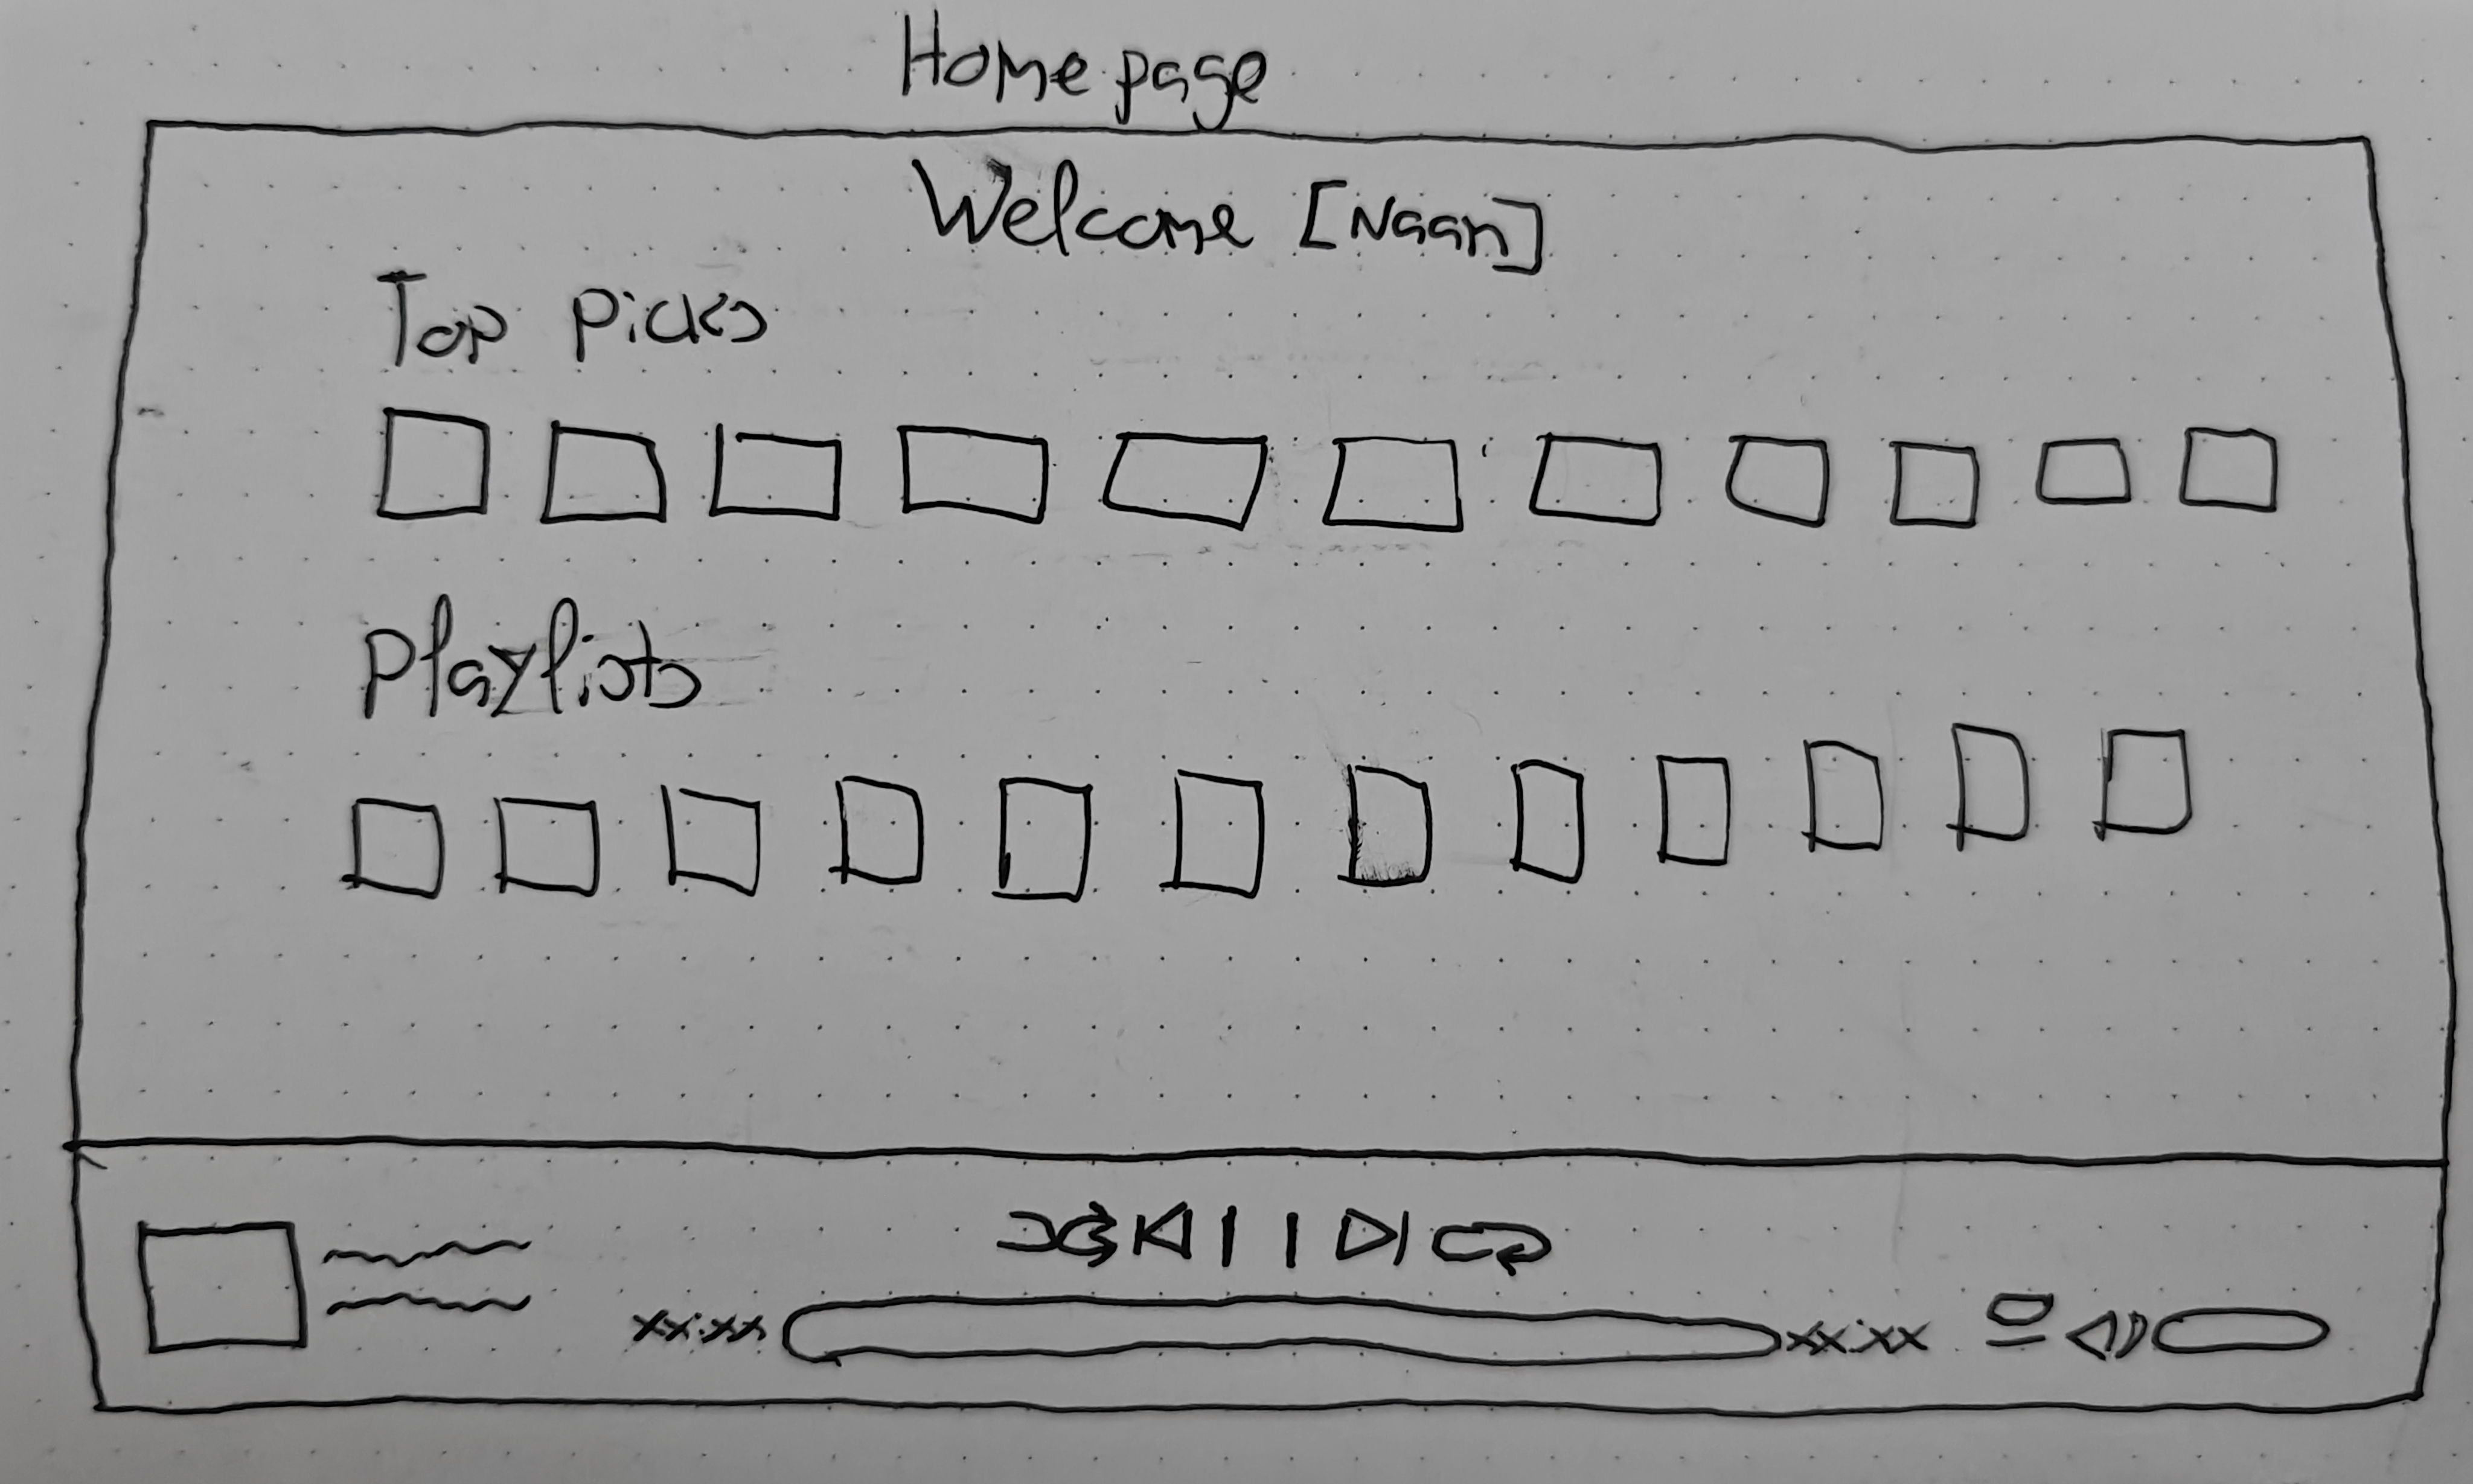 Home page
Welcome [Naan]
Top Picks
Playlists
xx:xx xx:xx